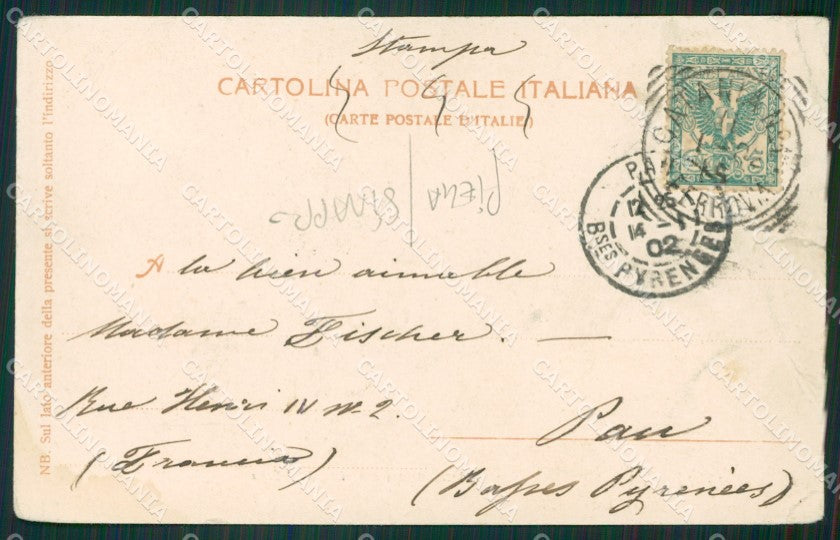 Stampa
CARTOLINA POSTALE ITALIANA
(CARTE POSTALE D'ITALIE)
PIEGA
STAMPO
CATANIA
FERROVIA
PAU
12 35
14 - 11
02
Bses PYRENEES
A la bien aimable
Madame Fischer. —
Rue Henri IV Nº 2.
Pau
(France)
(Basses Pyrenées)
NB. Sul lato anteriore della presente si scrive soltanto l'indirizzo
CARTOLINOMANIA